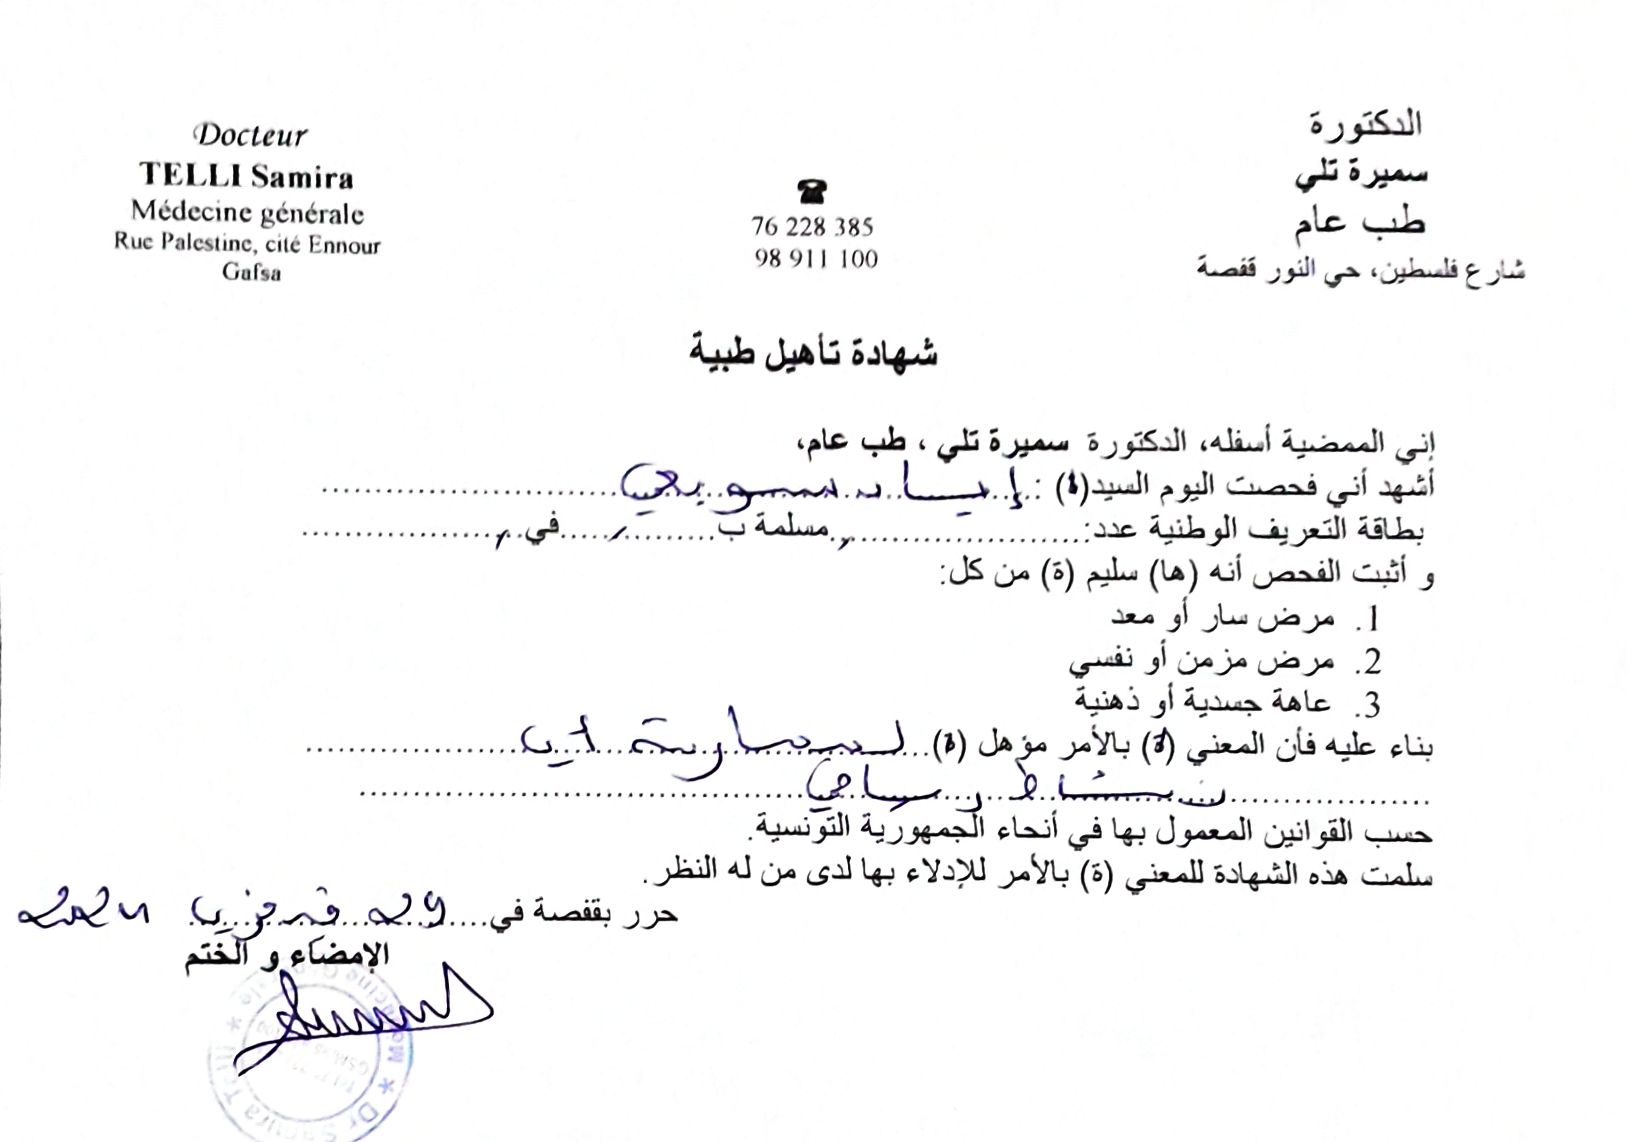 Docteur
TELLI Samira
Médecine générale
Rue Palestine, cité Ennour
Gafsa
76 228 385
98 911 100
الدكتورة
سميرة تلي
طب عام
شارع فلسطين، حي النور قفصة
شهادة تأهيل طبية
إني الممضية أسفله، الدكتورة سميرة تلي ، طب عام،
أشهد أني فحصت اليوم السيد(ة) : إياد سويحي
بطاقة التعريف الوطنية عدد: مسلمة ب في
و أثبت الفحص أنه (ها) سليم (ة) من كل:
1. مرض سار أو معد
2. مرض مزمن أو نفسي
3. عاهة جسدية أو ذهنية
بناء عليه فأن المعني (ة) بالأمر مؤهل (ة) لممارسة أي
نشاط رياضي
حسب القوانين المعمول بها في أنحاء الجمهورية التونسية.
سلمت هذه الشهادة للمعني (ة) بالأمر للإدلاء بها لدى من له النظر.
حرر بقفصة في 29
الإمضاء و الختم